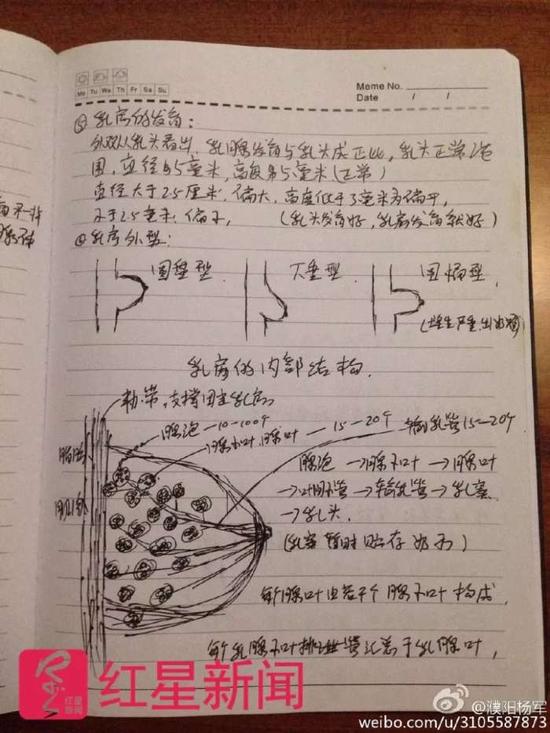 Meme No.
Mo Tu We Th Fr Sa Su
Date / /
③ 乳房的发育：
乳腺发育与乳头成正比，乳头正常范
围，直径 5毫米，高 5毫米（正常）
直径大于2.5厘米：偏大，高度低于3毫米为偏平，
小于2.5毫米：偏小，（乳头发育好，乳房发育就好）
④ 乳房外型：
圆盘型
下垂型
乳房的内部结构
韧带，支撑固定乳房
腺泡—10-100个
腺小叶 腺叶—15-20个
输乳管15-20个
腺泡→腺小叶→腺叶
→叶间管→输乳管→乳窦
→乳头
（乳窦暂时贮存奶水）
每个腺叶由若干个腺小叶构成，
每个乳腺小叶排 管汇总于乳腺叶，
红星新闻
红星新闻
@濮阳杨军
weibo.com/u/3105587873